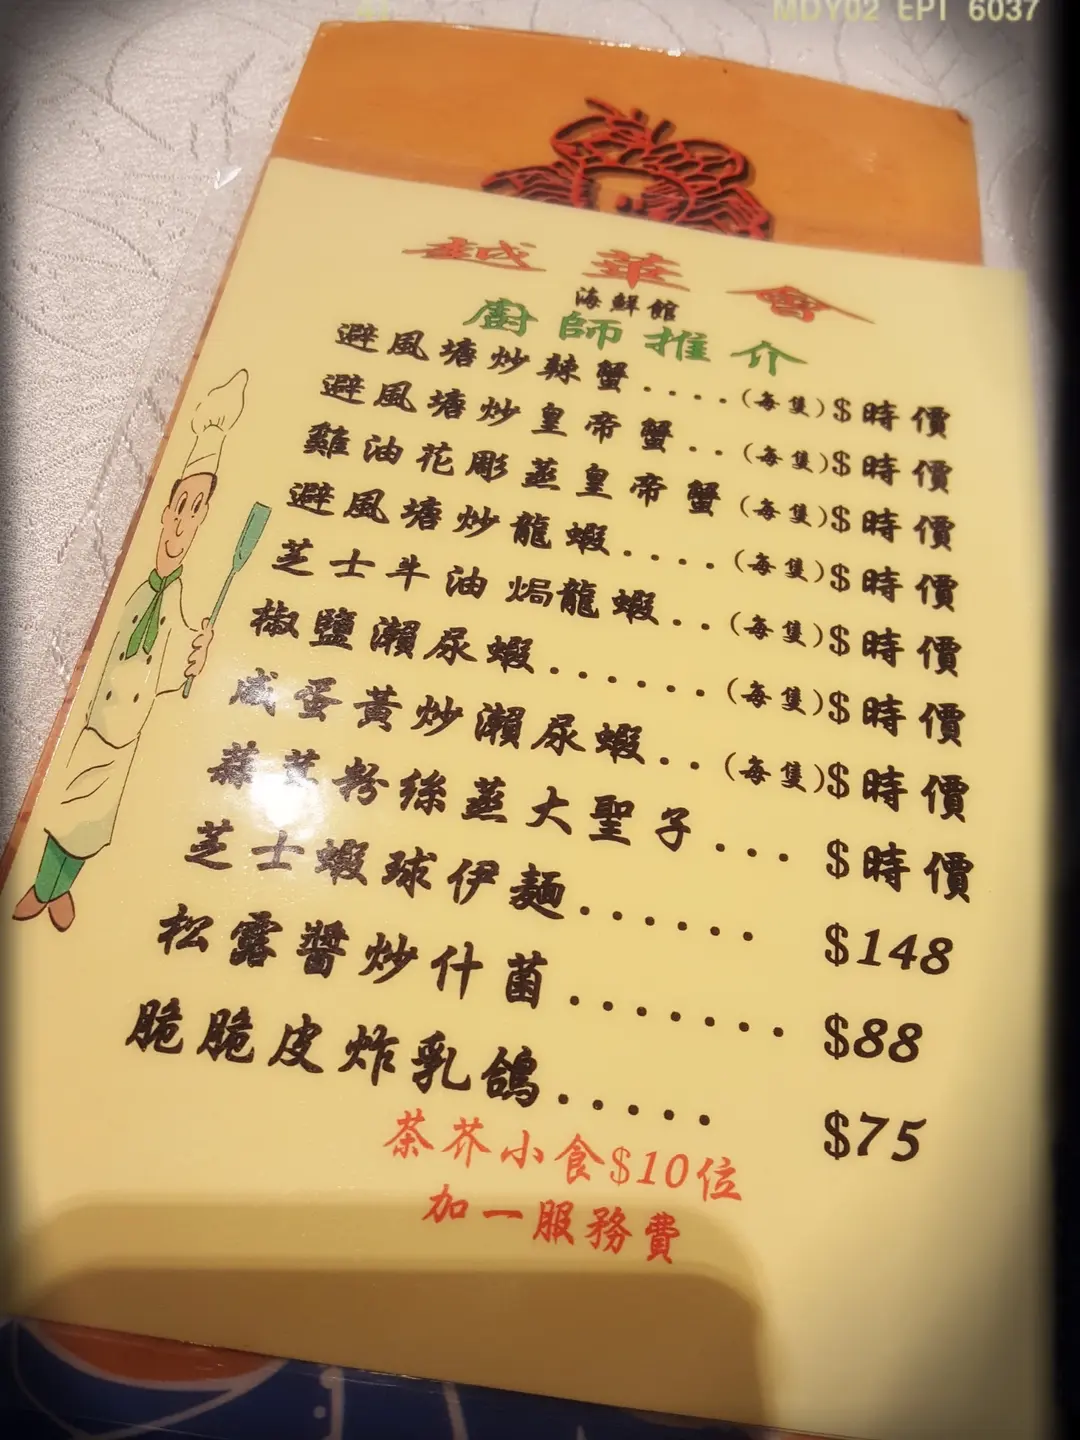 MDY02 EPT 6037
越華會
海鮮館
廚師推介
避風塘炒辣蟹....(每隻)$時價
避風塘炒皇帝蟹..(每隻)$時價
雞油花彫蒸皇帝蟹(每隻)$時價
避風塘炒龍蝦....(每隻)$時價
芝士牛油焗龍蝦..(每隻)$時價
椒鹽瀨尿蝦......(每隻)$時價
咸蛋黃炒瀨尿蝦..(每隻)$時價
蒜茸粉絲蒸大聖子...$時價
芝士蝦球伊麵...... $148
松露醬炒什菌....... $88
脆脆皮炸乳鴿..... $75
茶芥小食$10位
加一服務費